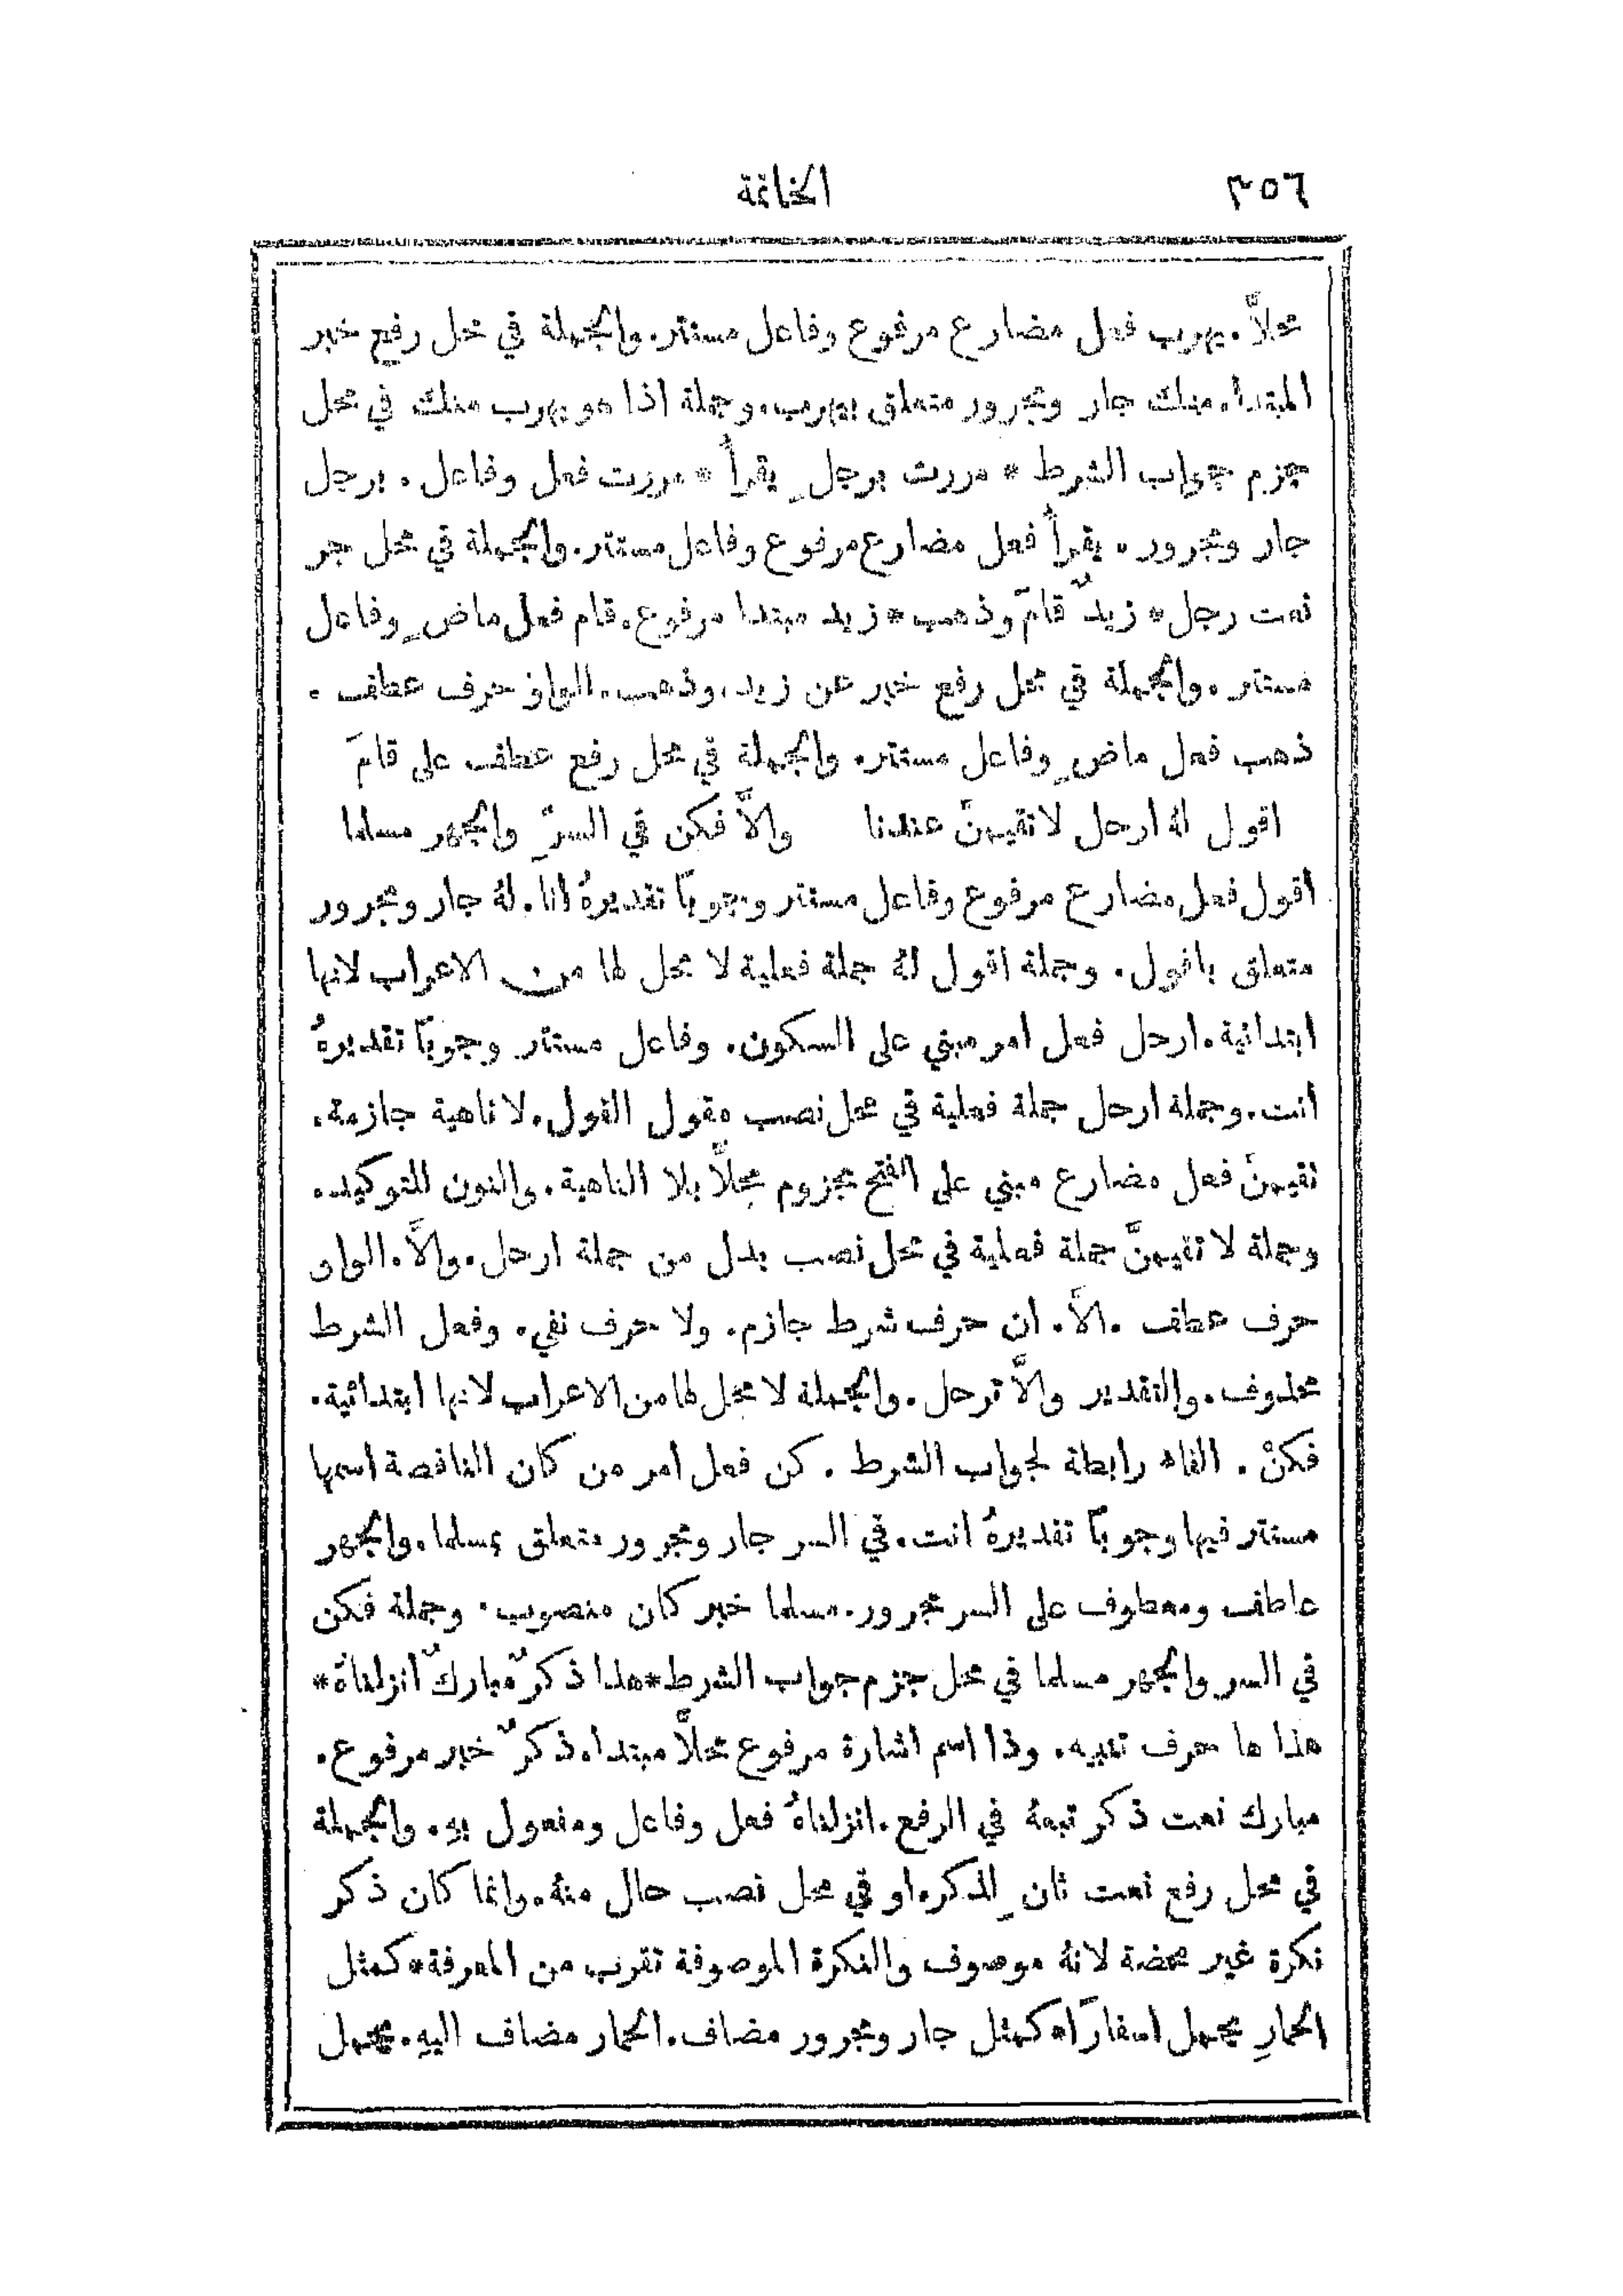 ٣٥٦
الخاتمة
محلاًّ. يهرب فعل مضارع مرفوع وفاعل مستتر. والجملة في محل رفع خبر
المبتدأ. منك جار ومجرور متعلق بيهرب. وجملة اذا هو يهرب منك في محل
جزم جواب الشرط * مررت برجلٍ يقرأُ * مررت فعل وفاعل . برجل
جار ومجرور . يقرأُ فعل مضارع مرفوع وفاعل مستتر. والجملة في محل جر
نعت رجل * زيدٌ قامَ وذهب * زيد مبتدا مرفوع. قام فعل ماضٍ وفاعل
مستتر . والجملة في محل رفع خبر عن زيد، وذهب. الواو حرف عطف .
ذهب فعل ماضٍ وفاعل مستتر. والجملة في محل رفع عطف على قامَ
اقول لهُ ارحل لا تقيمنَّ عندنا والاَّ فكن في السرِّ والجهر مسلما
اقول فعل مضارع مرفوع وفاعل مستتر وجوبًا تقديرهُ انا. لهُ جار ومجرور
متعلق باقول. وجملة اقول لهُ جملة فعلية لا محل لها من الاعراب لانها
ابتدائية. ارحل فعل امر مبني على السكون. وفاعل مستتر وجوبًا تقديرهُ
انت. وجملة ارحل جملة فعلية في محل نصب مقول القول. لا ناهية جازمة.
تقيمنَّ فعل مضارع مبني على الفتح مجزوم محلاًّ بلا الناهية. والنون للتوكيد.
وجملة لا تقيمنَّ جملة فعلية في محل نصب بدل من جملة ارحل. والاَّ. الواو
حرف عطف .الاَّ. ان حرف شرط جازم. ولا حرف نفي. وفعل الشرط
محذوف. والتقدير والاَّ ترحل. والجملة لا محل لها من الاعراب لانها ابتدائية.
فكنْ . الفاء رابطة لجواب الشرط . كن فعل امر من كان الناقصة اسمها
مستتر فيها وجوبًا تقديرهُ انت. في السر جار ومجرور متعلق بمسلما. والجهر
عاطف ومعطوف على السر مجرور. مسلما خبر كان منصوب. وجملة فكن
في السر والجهر مسلما في محل جزم جواب الشرط * هذا ذكرٌ مباركٌ انزلناهُ *
هذا ها حرف تنبيه. وذا اسم اشارة مرفوع محلاًّ مبتدا. ذكرٌ خبر مرفوع.
مبارك نعت ذكر تبعهُ في الرفع. انزلناهُ فعل وفاعل ومفعول بهِ. والجملة
في محل رفع نعت ثانٍ لذكر. او في محل نصب حال منهُ. وانما كان ذكر
نكرة غير محضة لانهُ موصوف والنكرة الموصوفة تقرب من المعرفة * كمثل
الحمارِ يحمل اسفارًا * كمثل جار ومجرور مضاف. الحمار مضاف اليهِ. يحمل